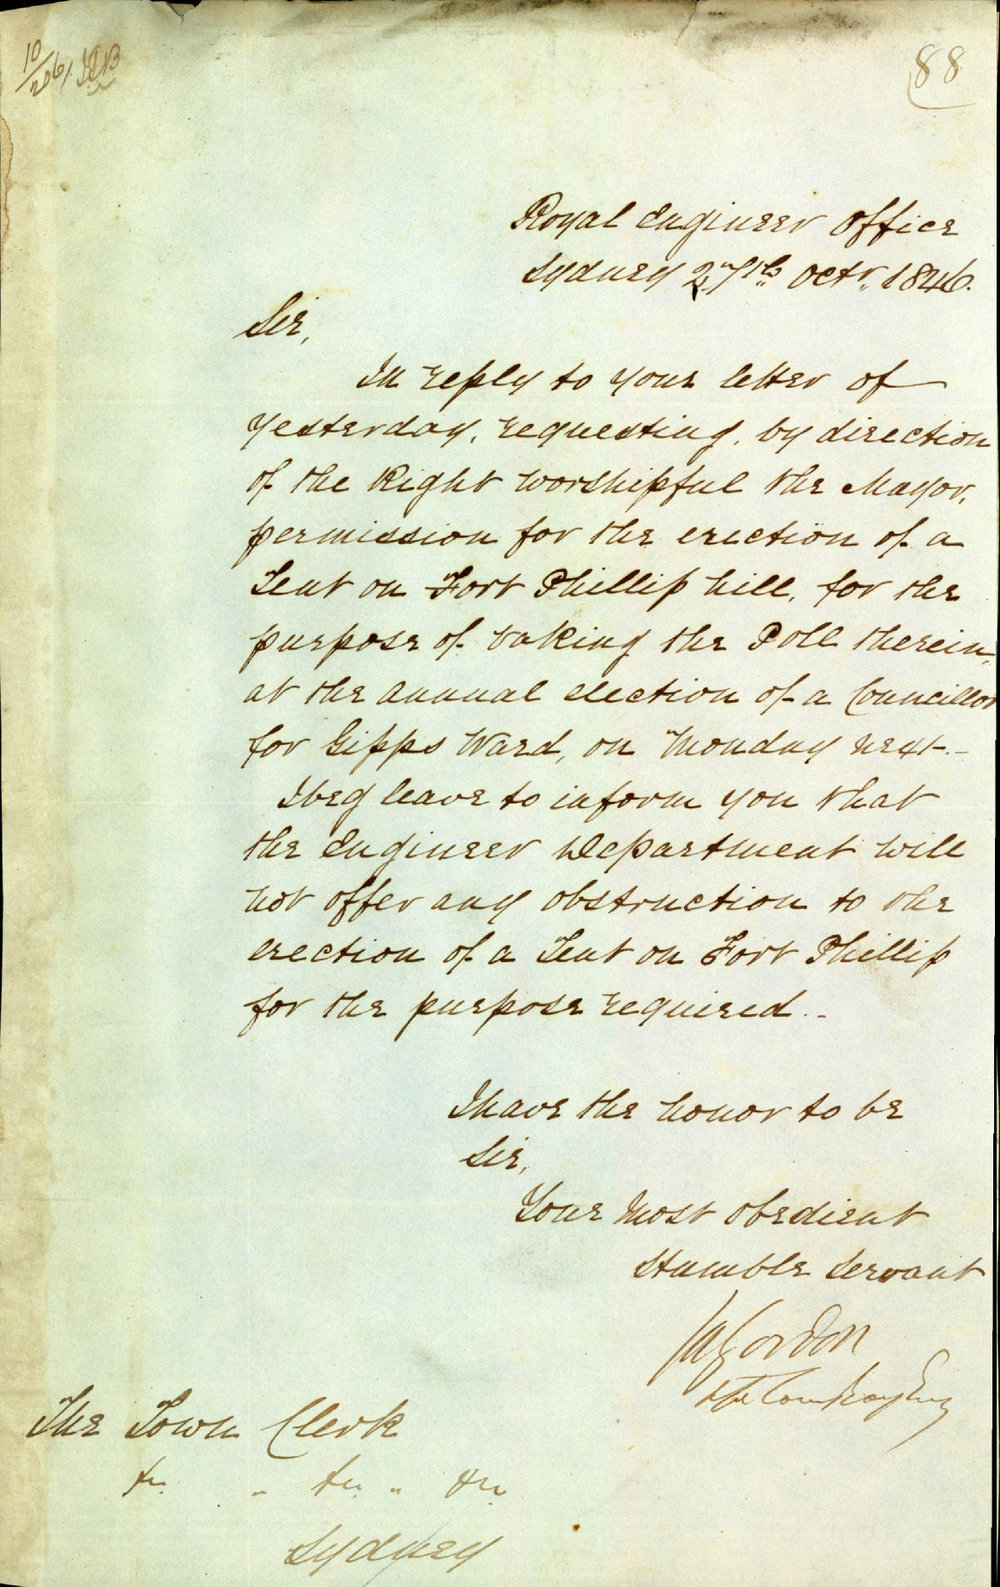 10/206/
88
Royal Engineer Office
Sydney 27th Octr. 1846.
Sir,
In reply to your letter of
Yesterday, requesting, by direction
of the Right Worshipful the Mayor,
permission for the erection of a
Tent on Fort Phillip hill, for the
purpose of taking the Poll therein,
at the Annual election of a Councillor
for Gipps Ward, on Monday next.-
I beg leave to inform you that
the Engineer Department will
not offer any obstruction to the
erection of a Tent on Fort Phillip
for the purpose required.-
I have the honor to be
Sir,
Your Most Obedient
Humble Servant
Gordon
The Town Clerk
&c. " &c. " &c.
Sydney